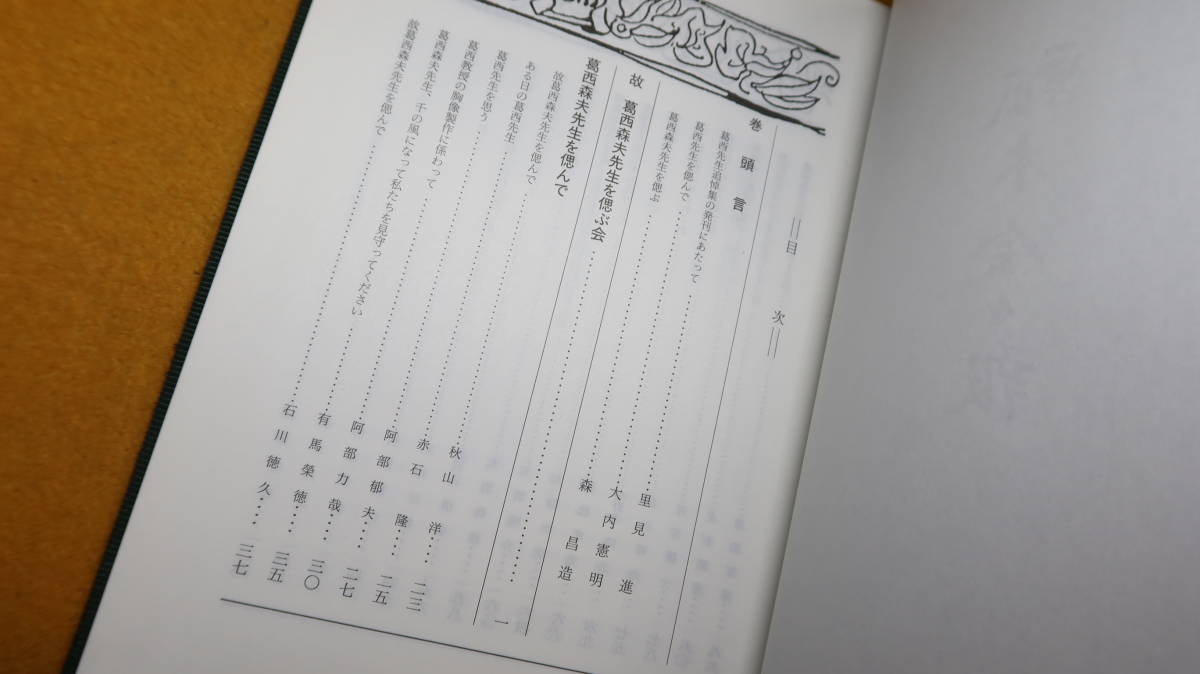 目次
巻頭言
葛西先生追悼集の発刊にあたって……里見進
葛西先生を偲んで……大内憲明
葛西森夫先生を偲ぶ……森昌造
故 葛西森夫先生を偲ぶ会……一
葛西森夫先生を偲んで
故葛西森夫先生を偲んで……秋山洋……二三
ある日の葛西先生……赤石隆……二五
葛西先生を思う……阿部郁夫……二七
葛西教授の胸像製作に係わって……阿部力哉……三〇
葛西森夫先生、千の風になって私たちを見守ってください……有馬榮徳……三五
故葛西森夫先生を偲んで……石川徳久……三七